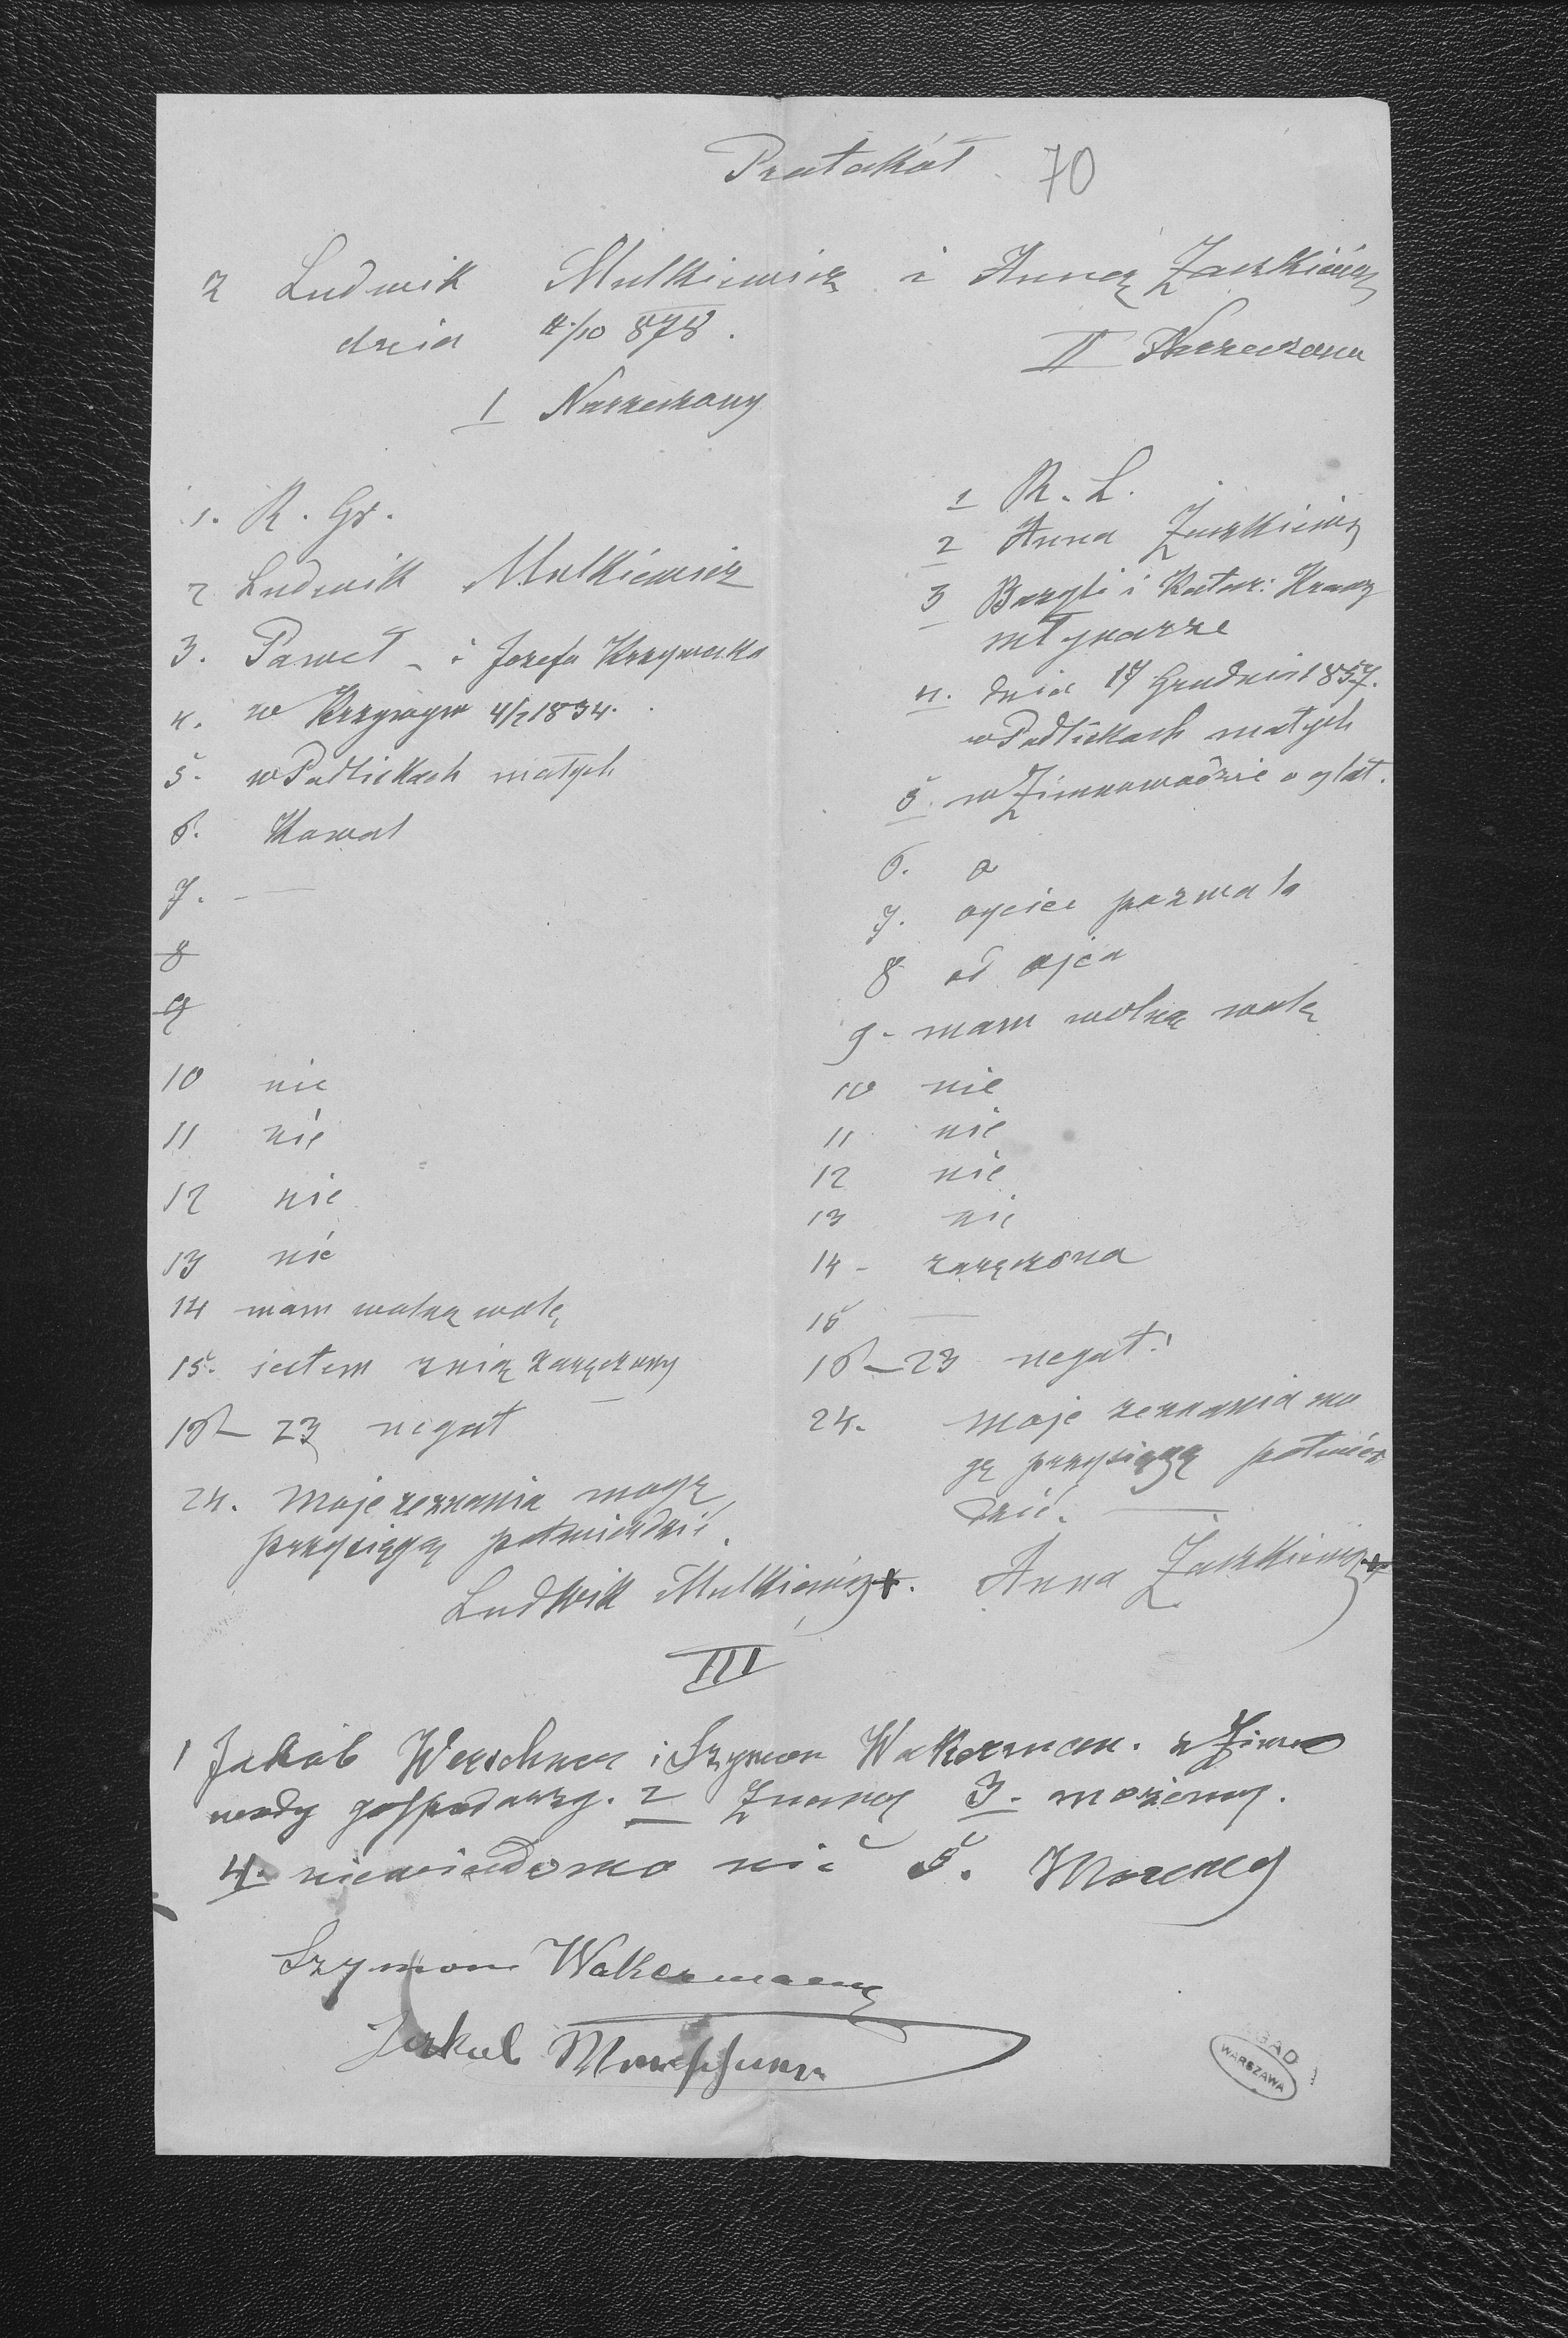 Protokół 70
z Ludwik Mulkiewicz i Anną Zaczkiewicz
dnia 4/10 878.
I Narzeczony
II Narzeczona
1. R. Gr.
2 Ludwik Mulkiewicz
3. Paweł i Jozefa Krzywecka
4. w Krzywym 4/2 1834.
5. w Podliskach małych
6. Kawal
7. —
8
9
10 nie
11 nie
12 nie
13 nie
14 mam wolną wolę
15. jestem z nią zaręczony
16 – 23 negat
24. Moje zeznania mogę
przysięgą potwierdzić.
Ludwik Mulkiewicz +.
1 R. L.
2 Anna Zaczkiewicz
3 Bazyli i Katar:
młynarze
4. dnia 17 Grudnia 1857.
w Podliskach małych
5. w Zimnowodzie o
6. o
7. ojciec pozwala
8 od ojca
9 - mam wolną wolę
10 nie
11 nie
12 nie
13 nie
14 - zaręczona
15 —
16 – 23 negat:
24. Moje zeznania mo
gę przysięgą potwier
dzić. —
Anna Zaczkiewicz +
III
1 Jakób i Szymon Wakerman. z Zimno
wody gospodarzy. 2 Znamy 3. możemy.
4. niewiadomo nic 5. Możemy
Szymon Wakermann
Jakub
AGAD
WARSZAWA